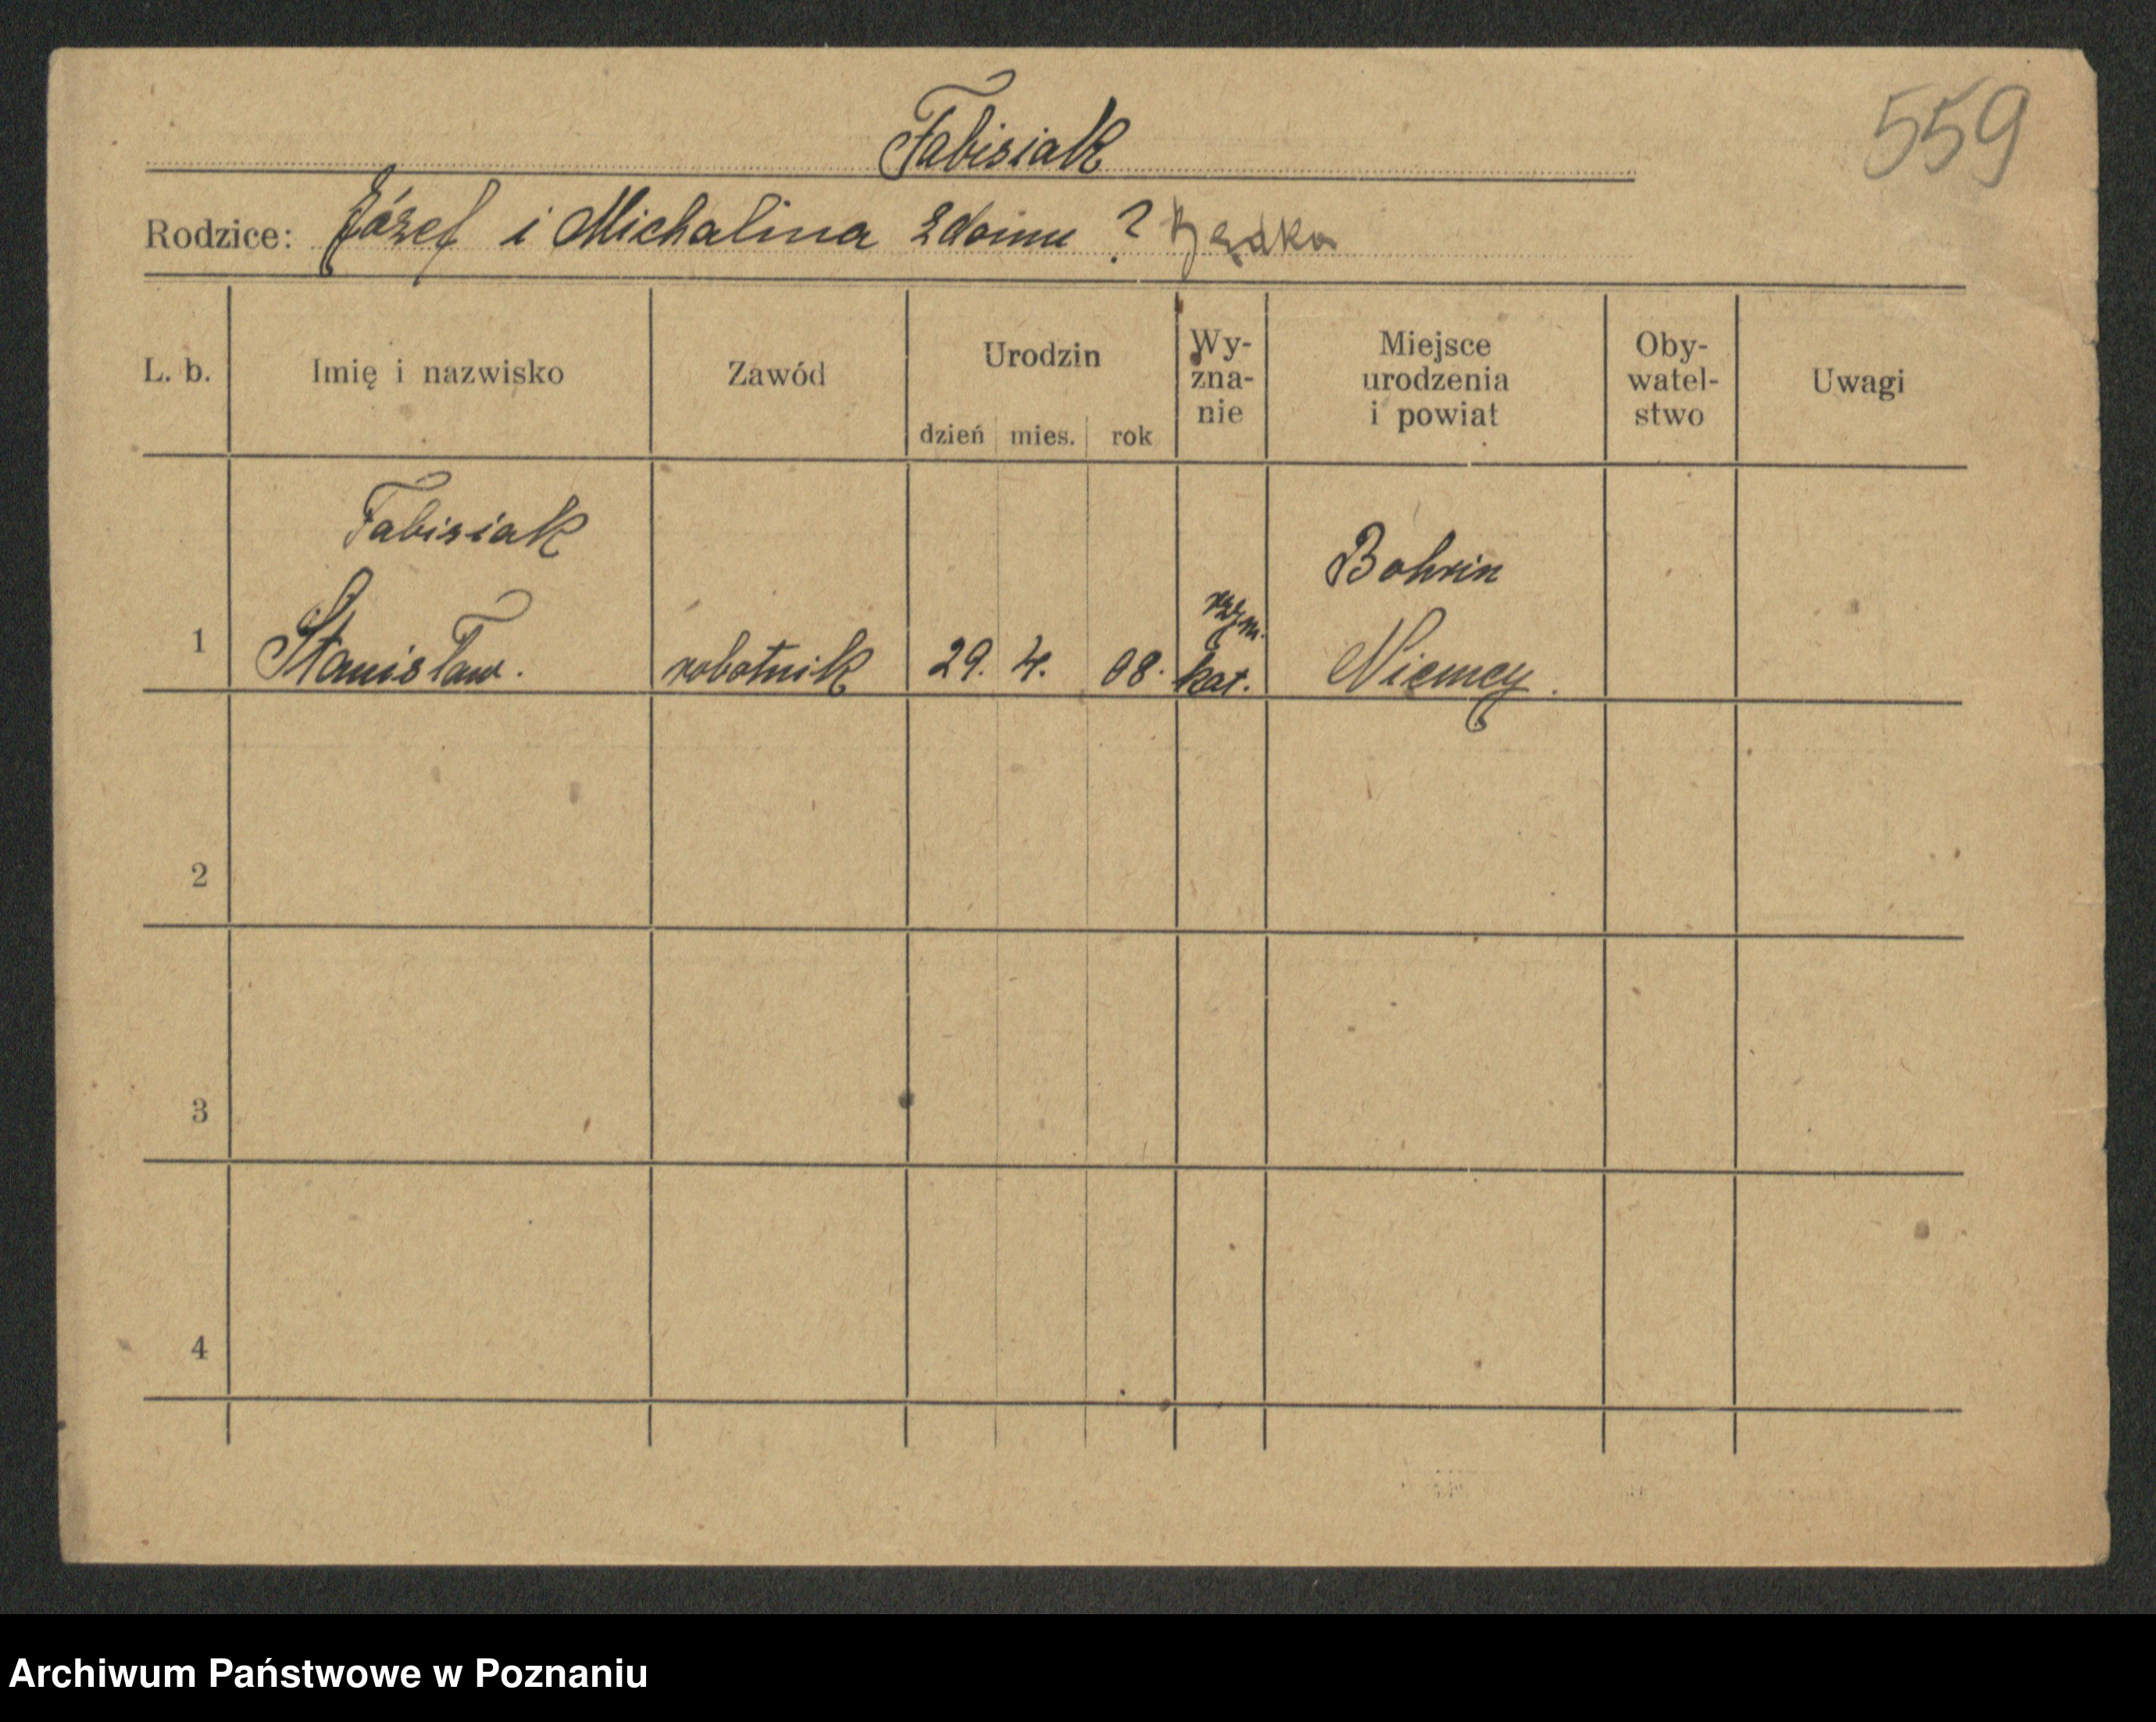 559
Fabisiak
Rodzice: Józef i Michalina z domu ?
L. b. Imię i nazwisko Zawód Urodzin dzień mies. rok Wy-zna-nie Miejsce urodzenia i powiat Oby-watel-stwo Uwagi
Fabisiak
Bohrin
rzym.
1 Stanisław. robotnik 29. 4. 08. kat. Niemcy.
2
3
4
Archiwum Państwowe w Poznaniu